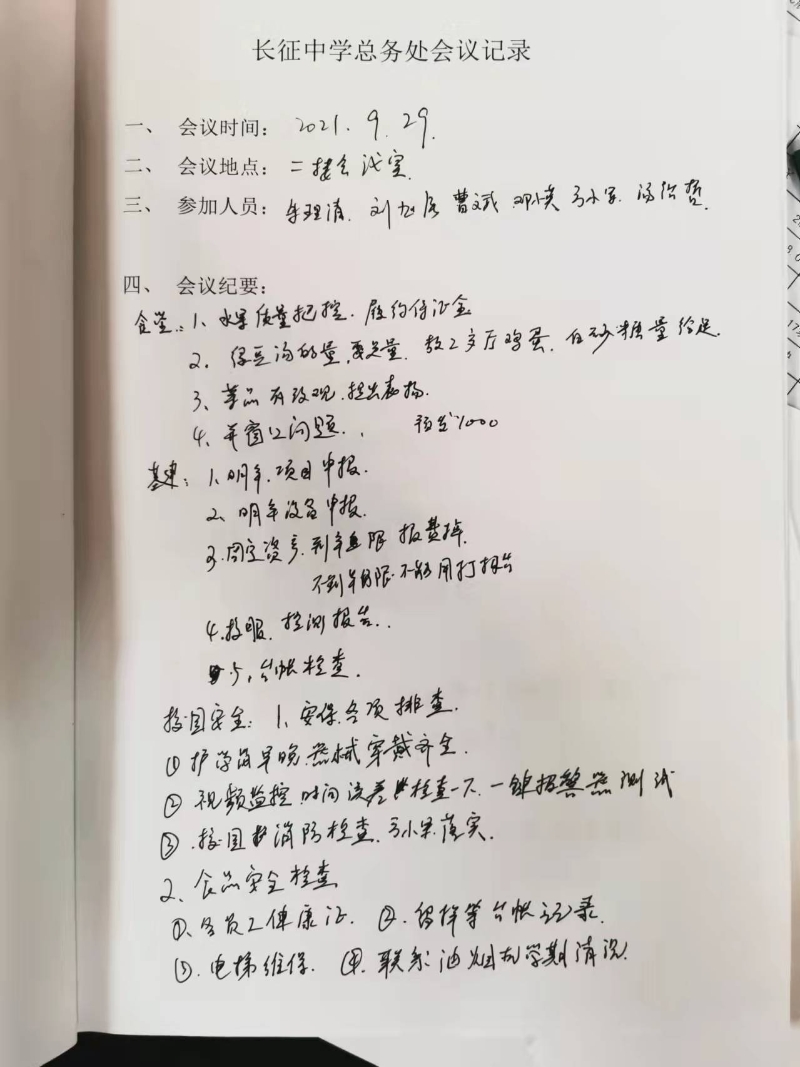 长征中学总务处会议记录
一、 会议时间： 2021.9.29.
二、 会议地点： 二楼会议室.
三、 参加人员： 刘 曹文斌 邓 汤
四、 会议纪要：
食堂：1、水果质量把控. 履约保证金
2、绿豆汤的量，要足量. 教工 鸡蛋、白砂糖量给足.
3、菜品有改观. 提出表扬.
4、开窗口问题. 1000
基建：1.明年.项目申报.
2、明年设备申报.
3.固定资产.到年限 报费掉.
不到年限.不能用打报告
4.校服. 检测报告.
5、台帐检查.
校园安全：1、安保各项排查.
①护学岗早晚.器械穿戴齐全.
②视频监控 时间误差 检查一下.一键报警器测试
③.校园 消防检查. 落实.
2、食品安全检查
①、各员工健康证. ②.留样等台帐记录.
③.电梯维保. ④.联系油烟机学期情况.